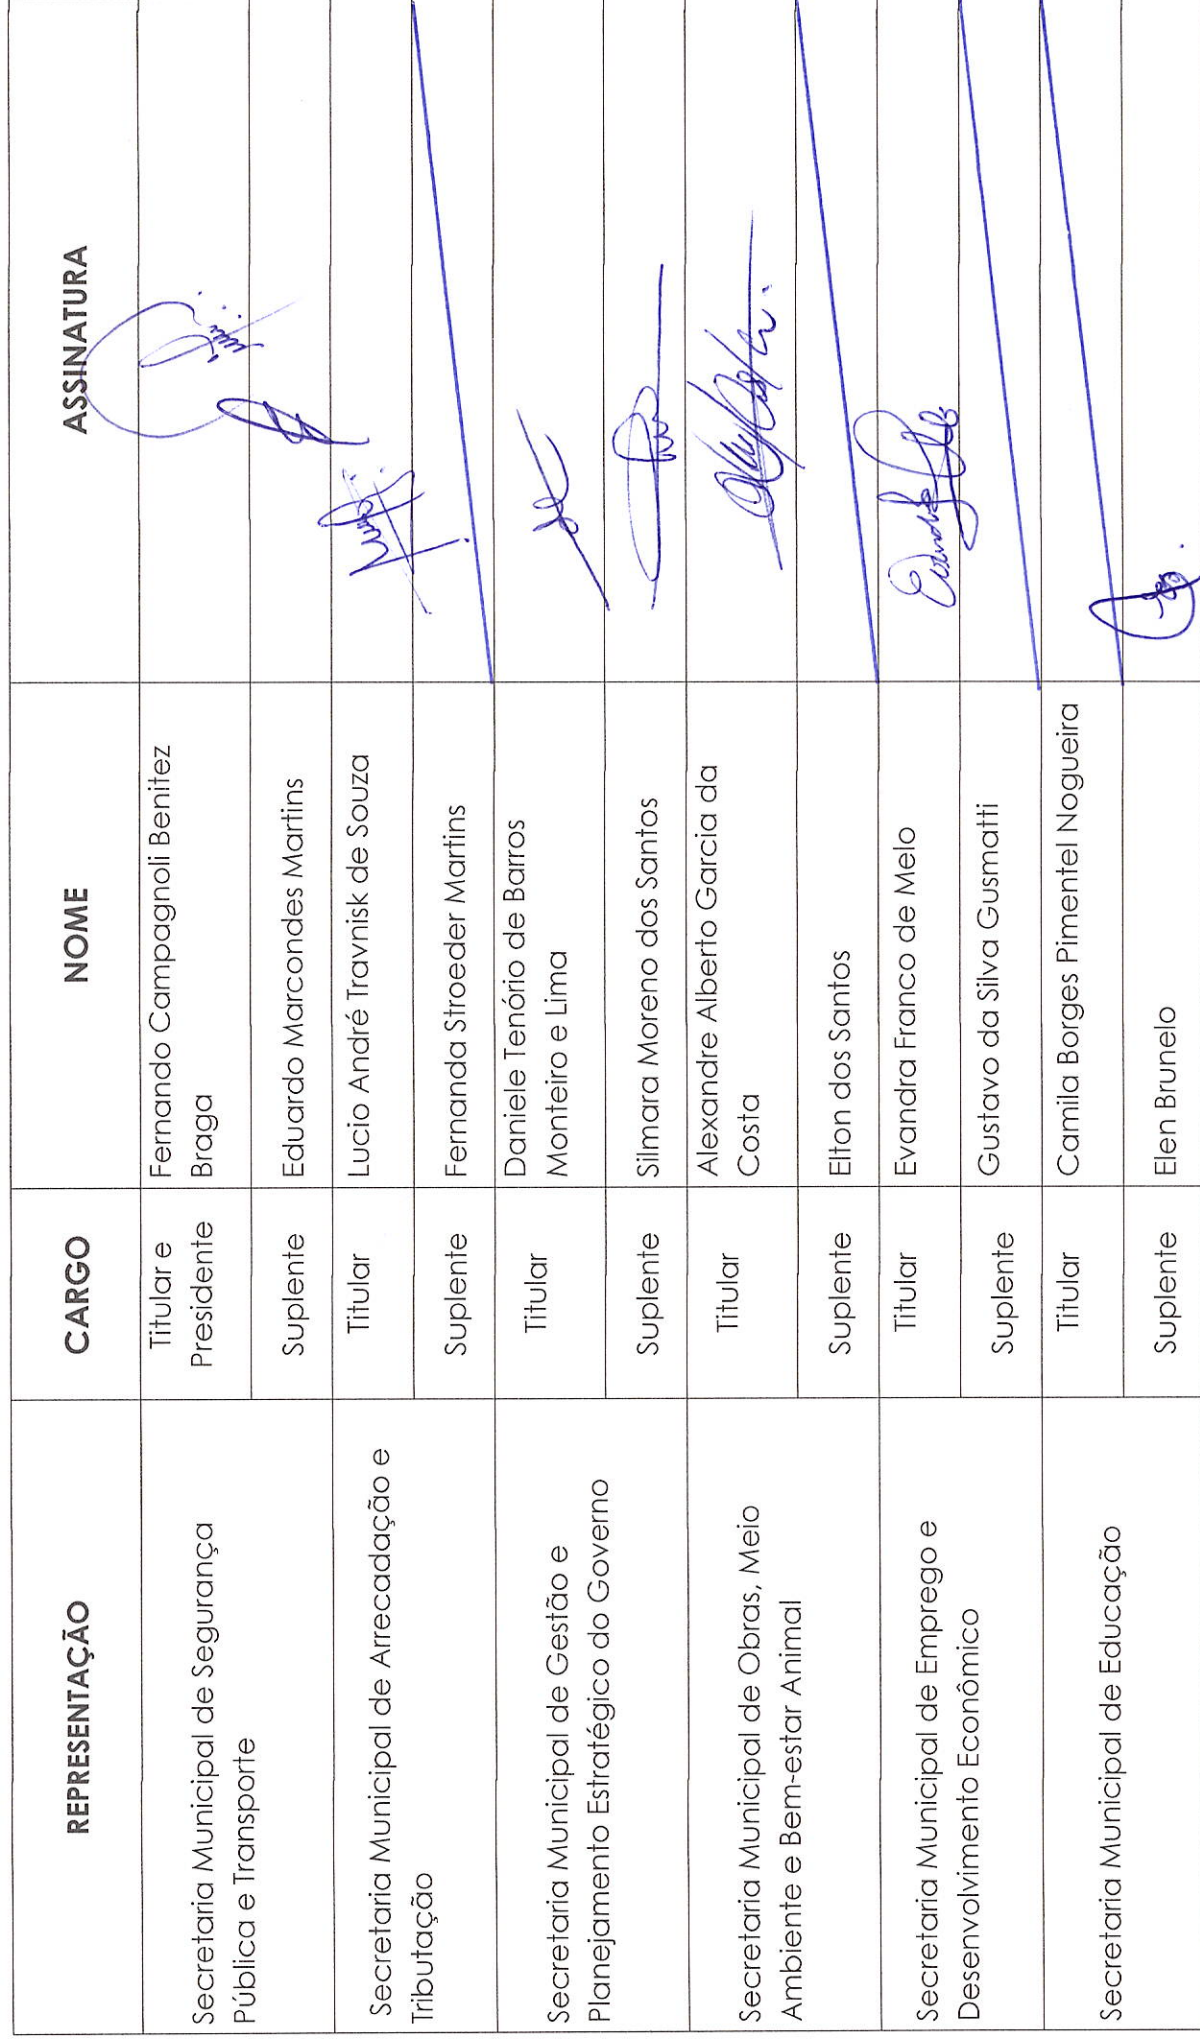 REPRESENTAÇÃO CARGO NOME ASSINATURA
Secretaria Municipal de Segurança
Pública e Transporte
Titular e
Presidente
Fernando Campagnoli Benitez
Braga
Suplente Eduardo Marcondes Martins
Secretaria Municipal de Arrecadação e
Tributação
Titular Lucio André Travnisk de Souza
Suplente Fernanda Stroeder Martins
Secretaria Municipal de Gestão e
Planejamento Estratégico do Governo
Titular
Daniele Tenório de Barros
Monteiro e Lima
Suplente Silmara Moreno dos Santos
Secretaria Municipal de Obras, Meio
Ambiente e Bem-estar Animal
Titular
Alexandre Alberto Garcia da
Costa
Suplente Elton dos Santos
Secretaria Municipal de Emprego e
Desenvolvimento Econômico
Titular Evandra Franco de Melo
Suplente Gustavo da Silva Gusmatti
Secretaria Municipal de Educação
Titular Camila Borges Pimentel Nogueira
Suplente Elen Brunelo